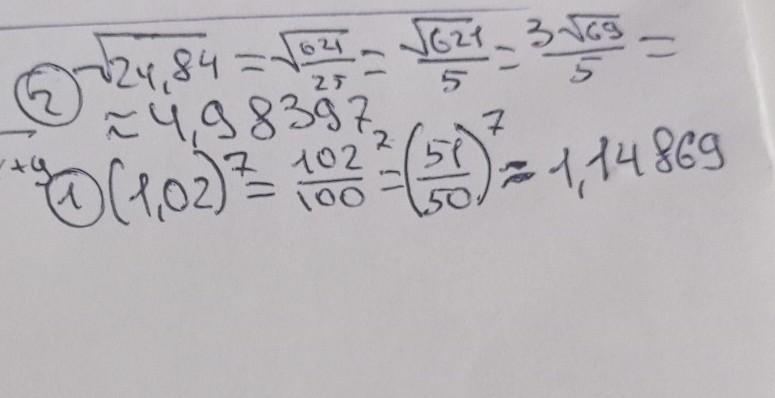 ② √24,84 = √621/25 = √621/5 = 3√69/5 =
≈ 4,98397
① (1,02)⁷ = 102/100² = (51/50)⁷ ≈ 1,14869